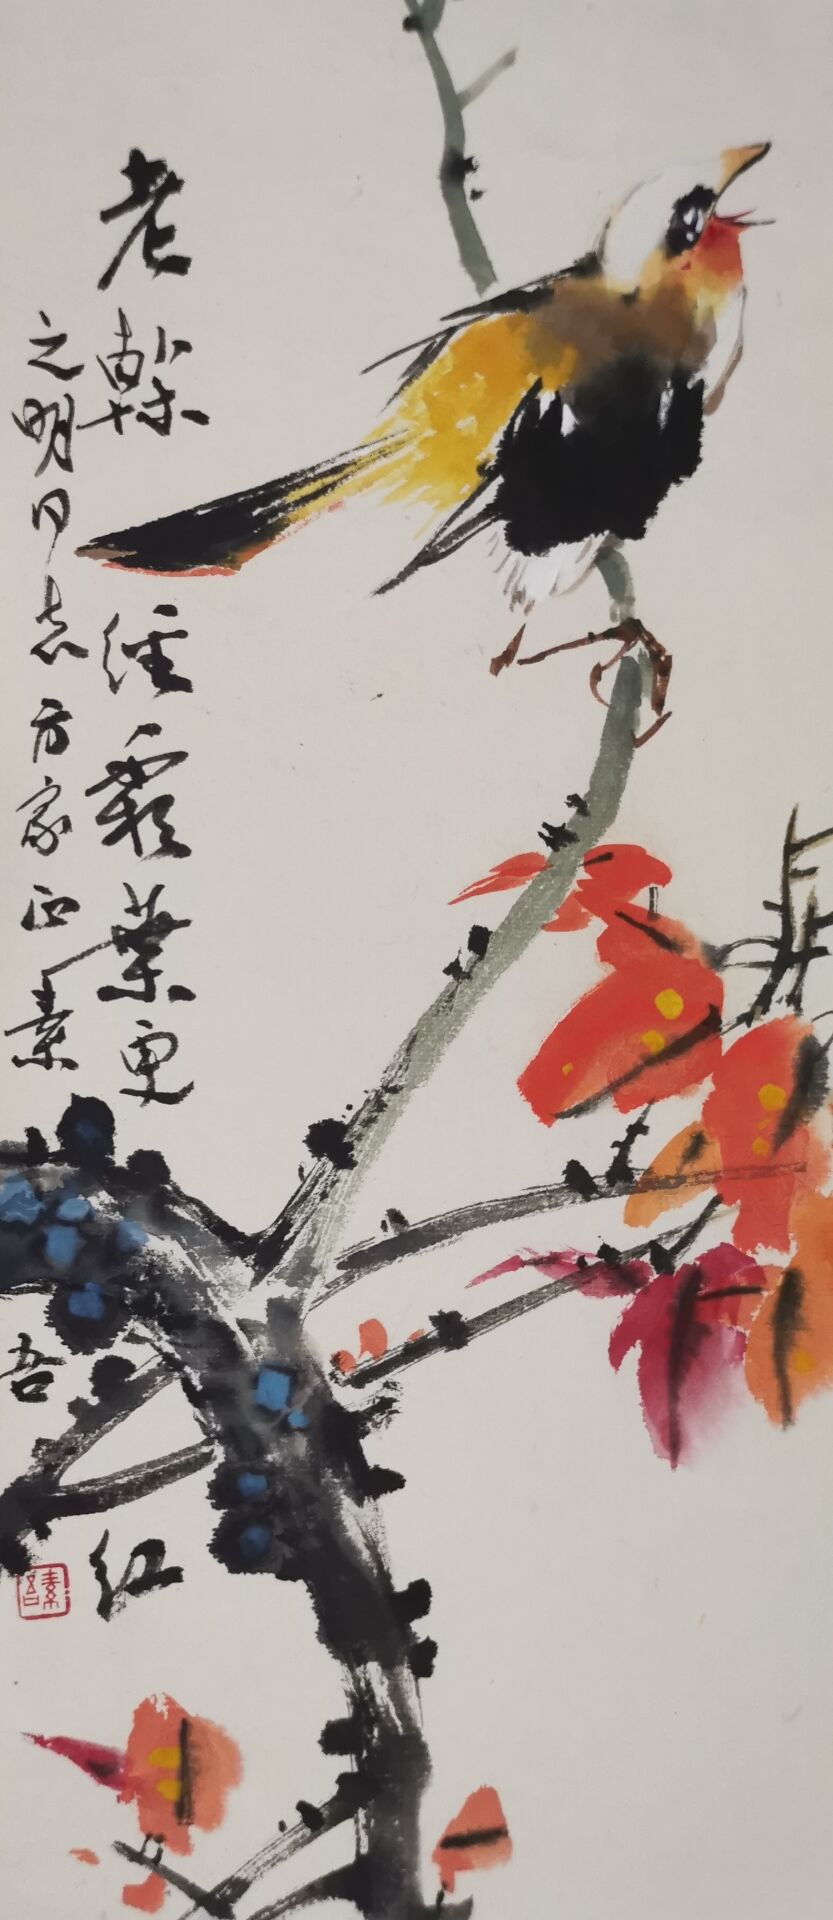 老榦经霜葉更红
之明同志方家正素吾
素吾